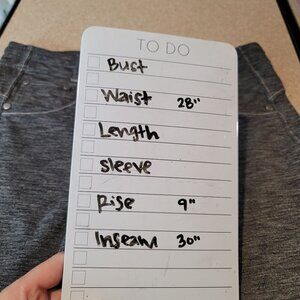 TO DO
Bust
Waist 28"
Length
sleeve
Rise 9"
Inseam 30"